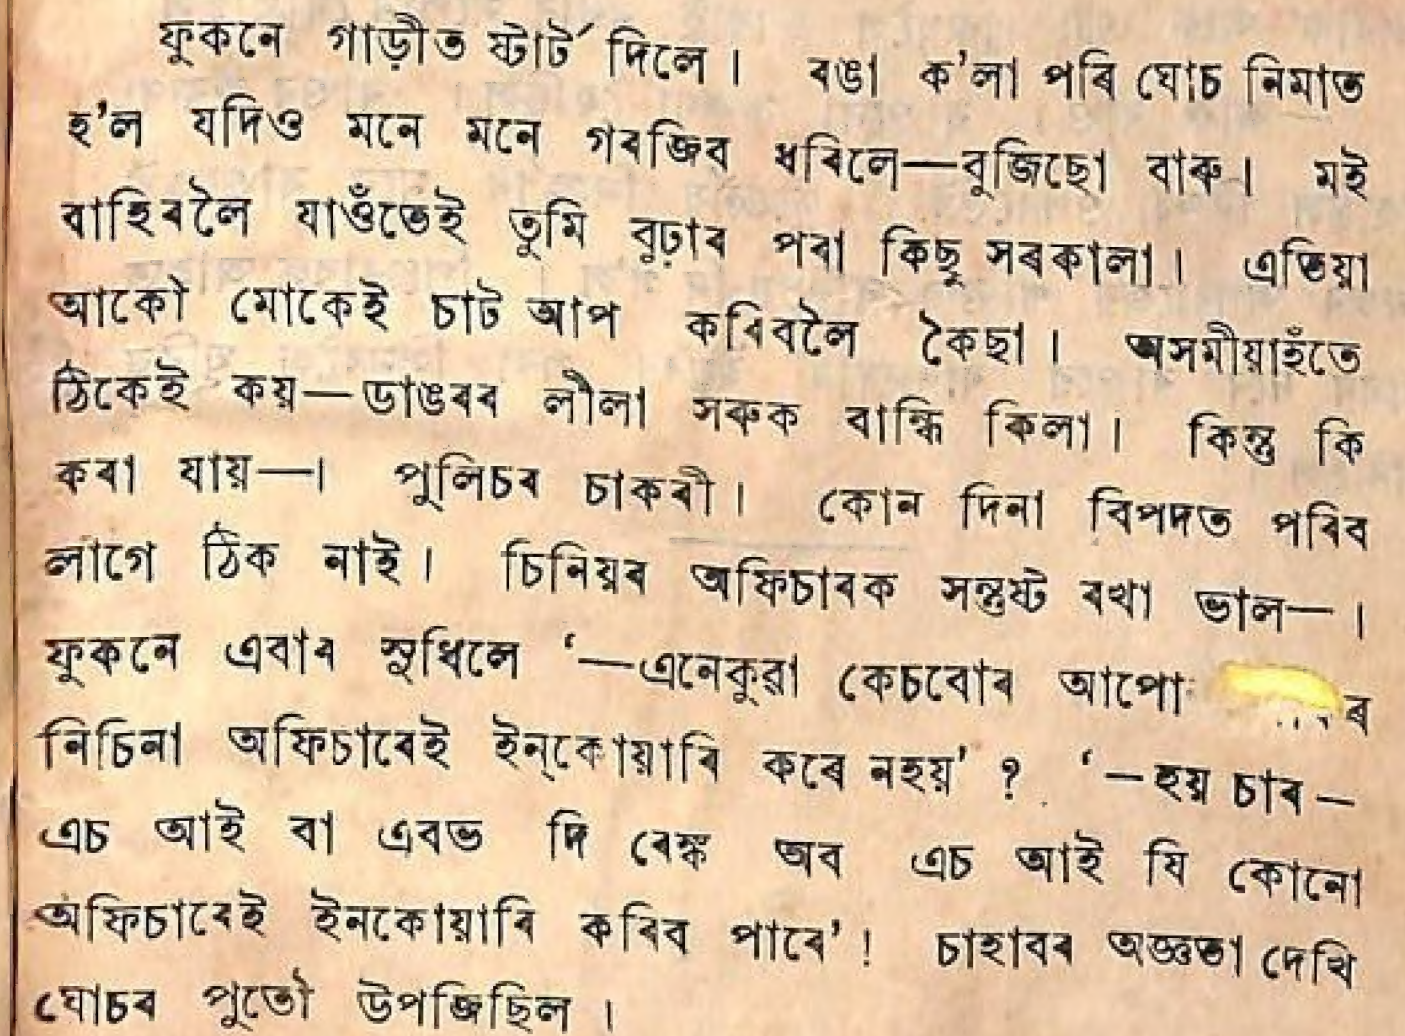 ফুকনে গাড়ীত ষ্টাৰ্ট দিলে। ৰঙা ক'লা পৰি ঘোচ নিমাত
হ'ল যদিও মনে মনে গৰজিব ধৰিলে—বুজিছো বাৰু। মই
বাহিৰলৈ যাওঁতেই তুমি বুঢ়াৰ পৰা কিছু সৰকালা। এতিয়া
আকৌ মোকেই চাট আপ কৰিবলৈ কৈছা। অসমীয়াহঁতে
ঠিকেই কয়—ডাঙৰৰ লীলা সৰুক বান্ধি কিলা। কিন্তু কি
কৰা যায়—। পুলিচৰ চাকৰী। কোন দিনা বিপদত পৰিব
লাগে ঠিক নাই। চিনিয়ৰ অফিচাৰক সন্তুষ্ট ৰখা ভাল—।
ফুকনে এবাৰ সুধিলে ‘—এনেকুৱা কেচবোৰ আপো
নিচিনা অফিচাৰেই ইন্‌কোয়াৰি কৰে নহয়’ ? ‘—হয় চাৰ—
এচ আই বা এবভ দি ৰেঙ্ক অব এচ আই যি কোনো
অফিচাৰেই ইনকোয়াৰি কৰিব পাৰে’! চাহাবৰ অজ্ঞতা দেখি
ঘোচৰ পুতৌ উপজিছিল।